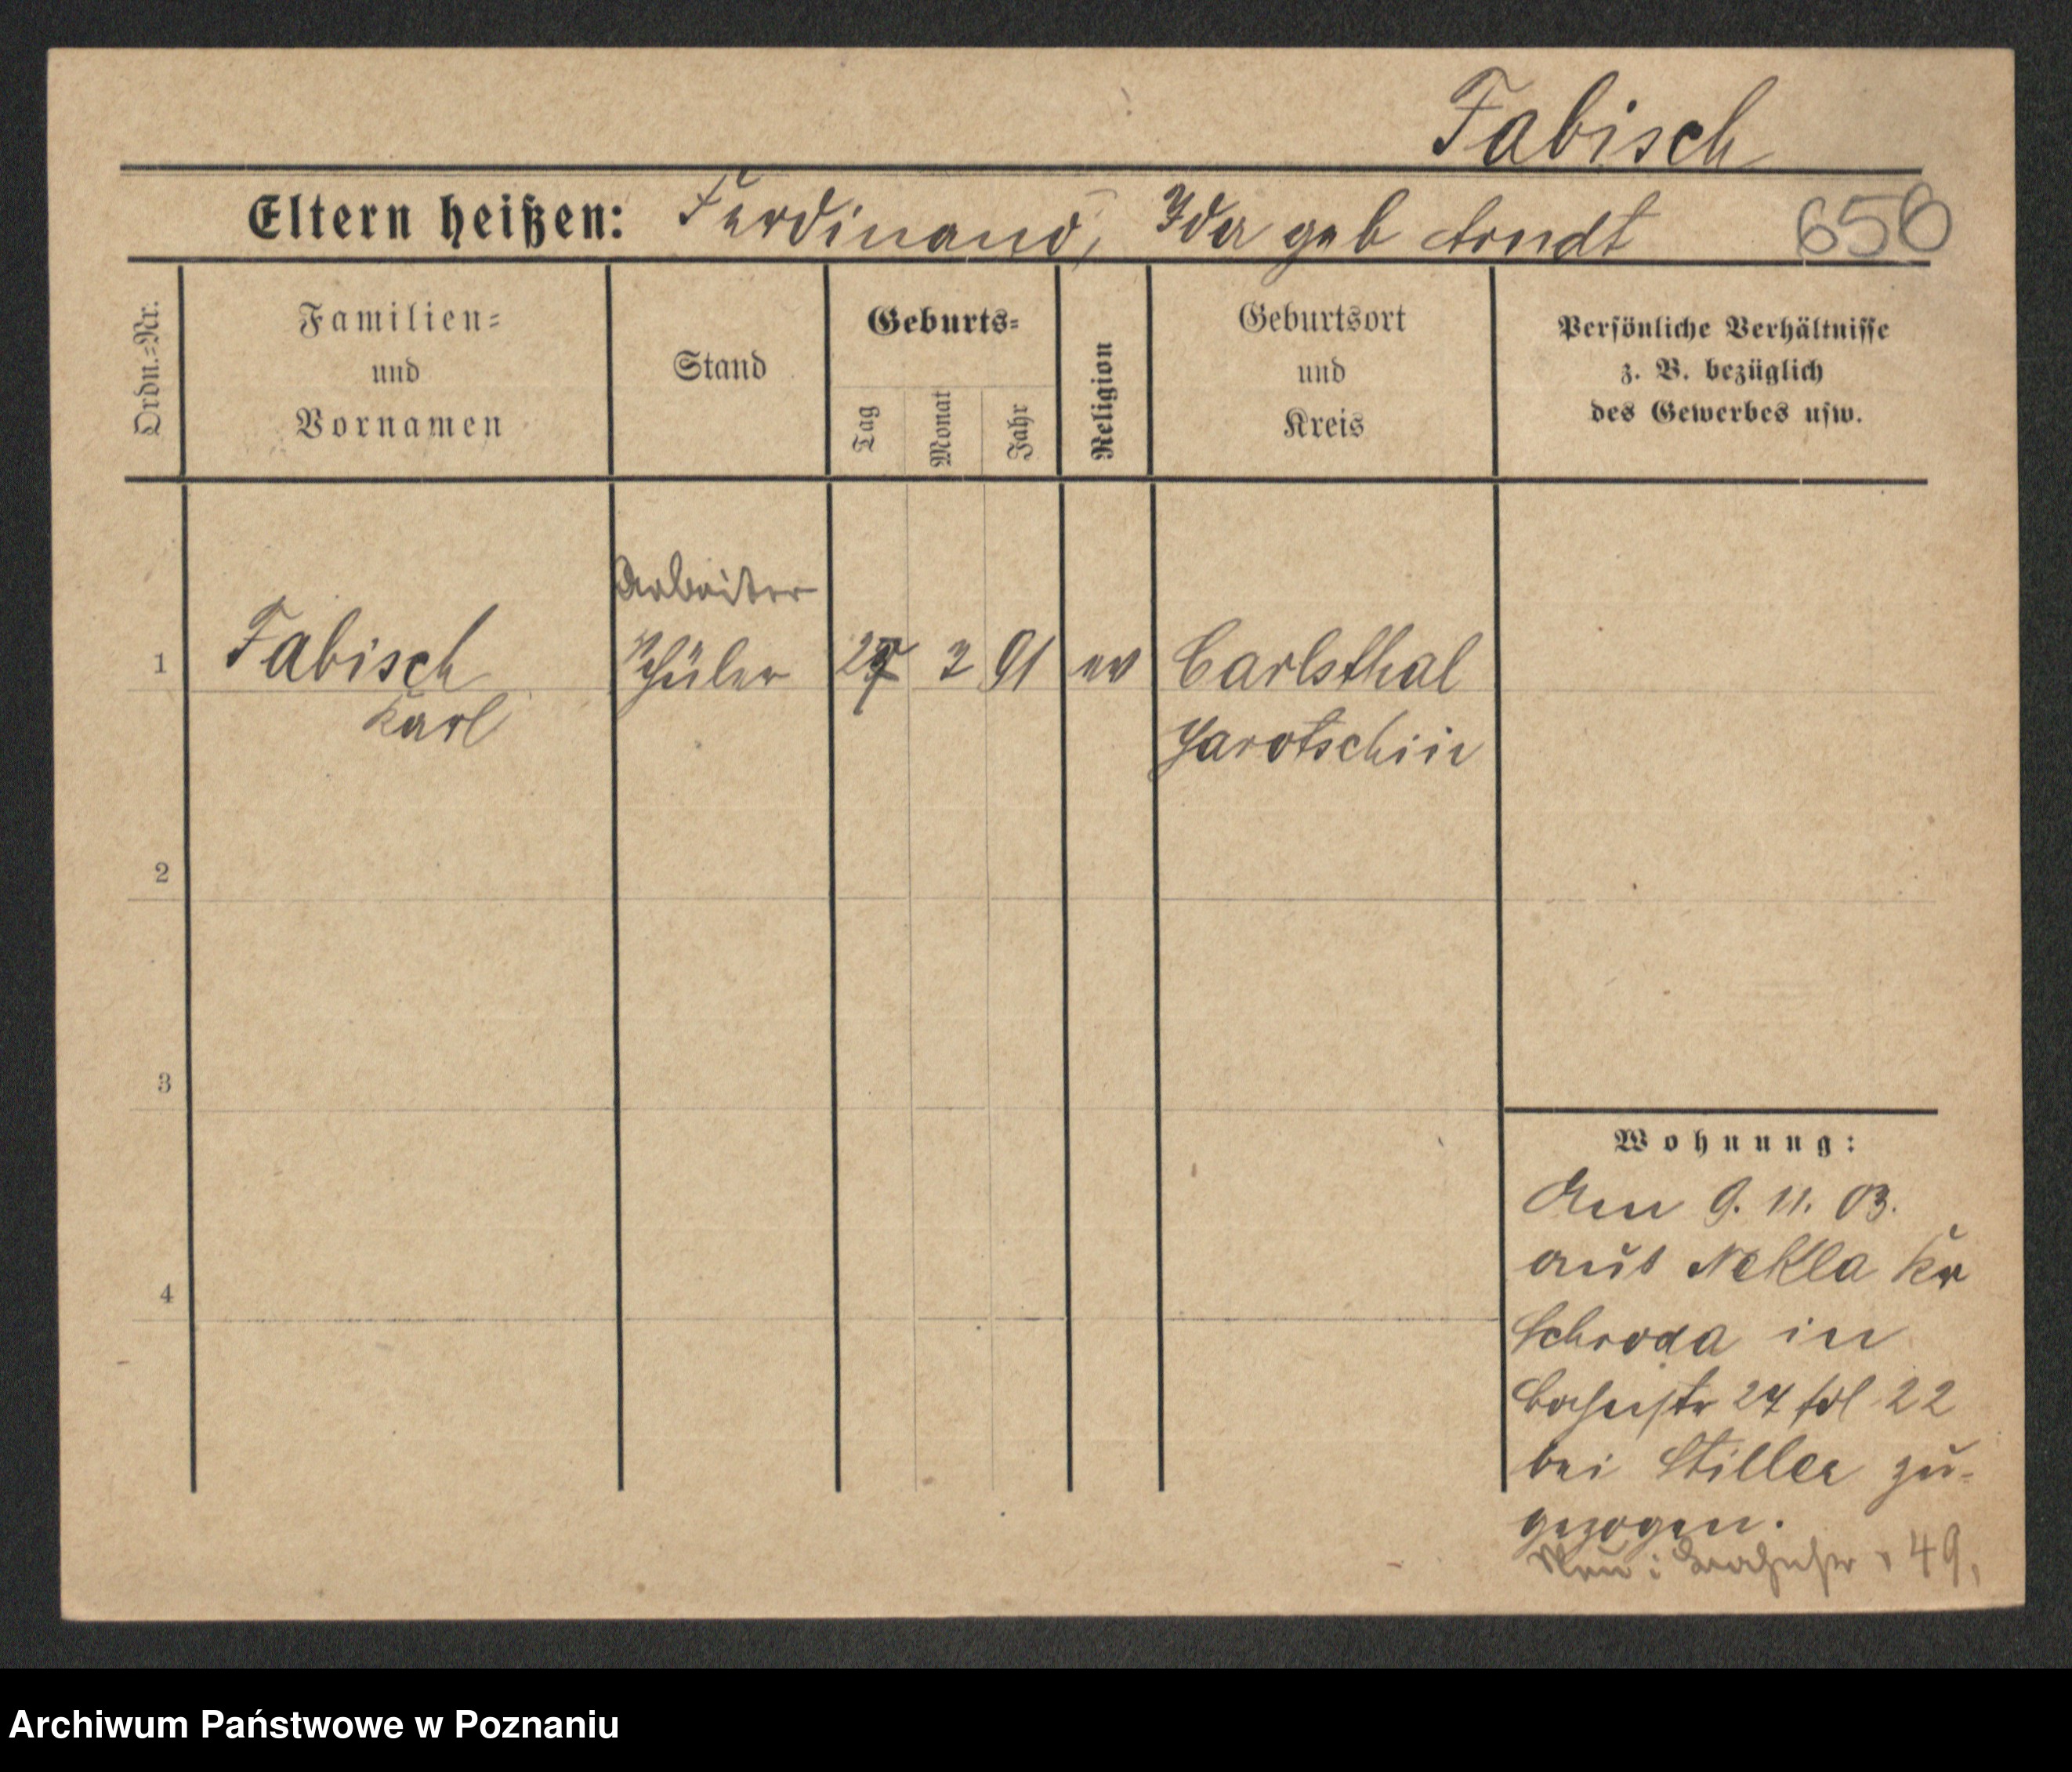 Fabisch
Eltern heißen: Ferdinand, Ida geb Arndt 656
Ordn.-Nr.
Familien-
und
Vornamen
Stand
Geburts-
Tag
Monat
Jahr
Religion
Geburtsort
und
Kreis
Persönliche Verhältnisse
z. B. bezüglich
des Gewerbes usw.
Arbeiter
1 Fabisch Schüler 91 ev Carlsthal
Karl Jarotschin
2
3
4
Wohnung:
Am 9. 11. 03.
aus Nekla Kr
Schroda in
24 22
bei Stiller zu-
gezogen.
Neu: 49,
Archiwum Państwowe w Poznaniu